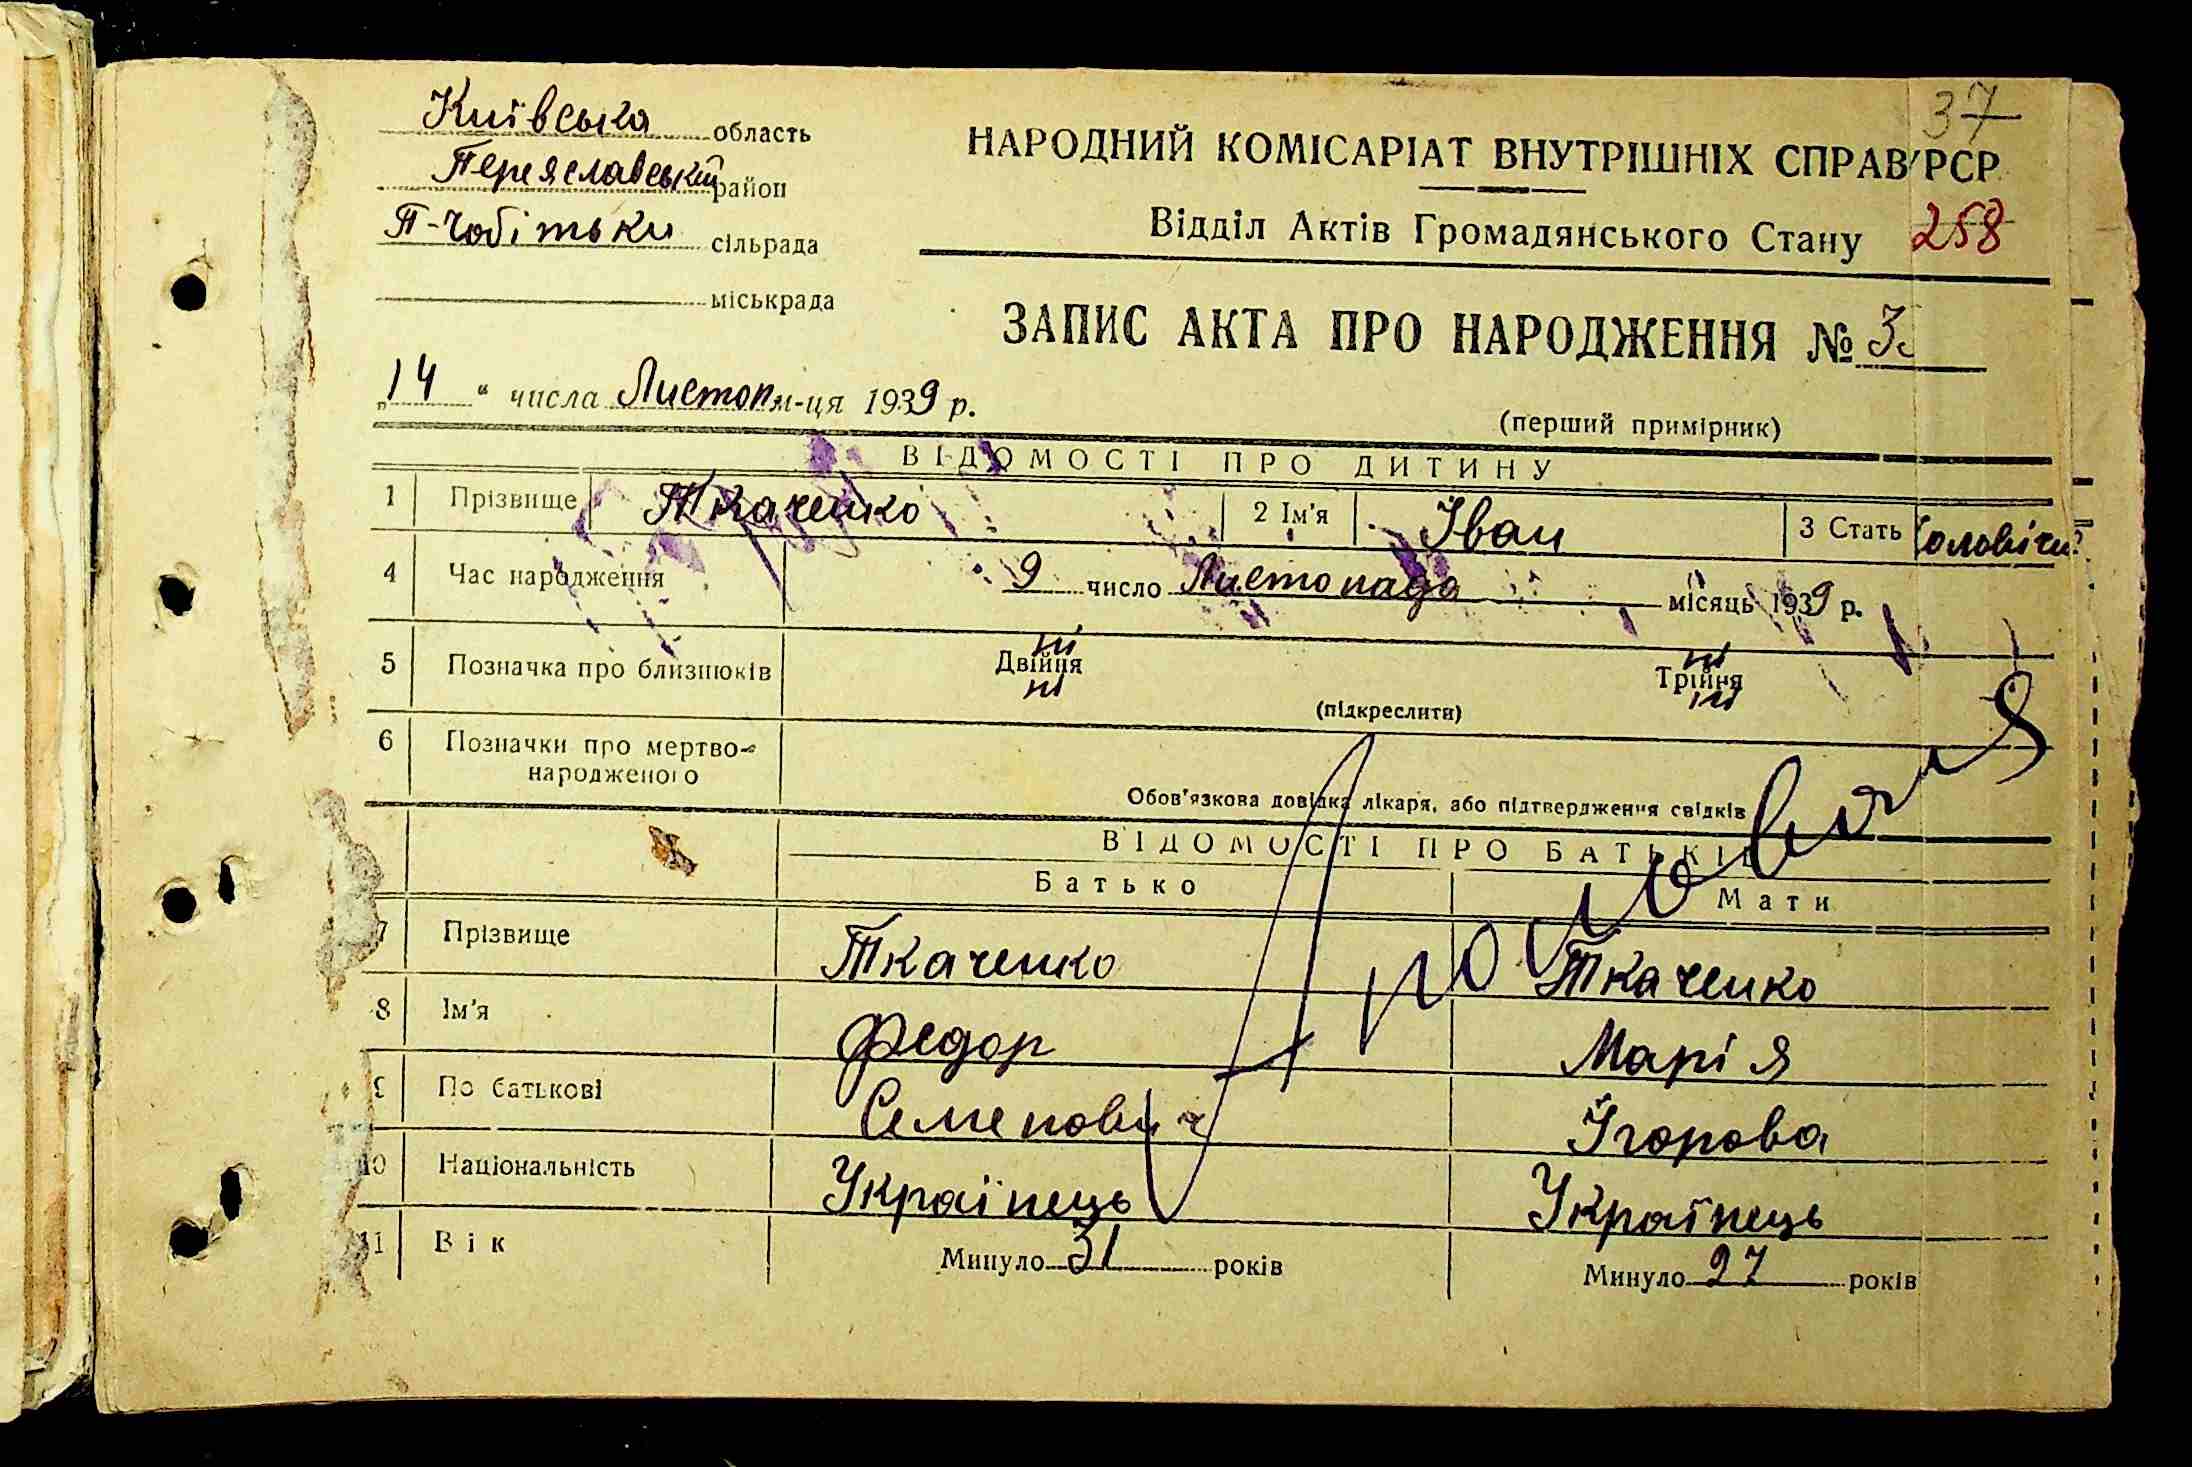 37
Київська область
Переяславський район
П-Чобітьки сільрада
міськрада
НАРОДНИЙ КОМІСАРІАТ ВНУТРІШНІХ СПРАВ РСР
Відділ Актів Громадянського Стану 258
ЗАПИС АКТА ПРО НАРОДЖЕННЯ №
„14“ числа Листоп м-ця 1939 р.
(перший примірник)
ВІДОМОСТІ ПРО ДИТИНУ
1 Прізвище Ткаченко 2 Ім'я Іван 3 Стать
4 Час народження 9 число Листопада місяць 1939 р.
ні ні
5 Позначка про близнюків Двійня Трійня
ні ні
(підкреслити)
6 Позначки про мертво-
народженого
Обов'язкова довідка лікаря, або підтвердження свідків
ВІДОМОСТІ ПРО БАТЬКІВ
Батько Мати
7 Прізвище Ткаченко Ткаченко
8 Ім'я Федор Марія
9 По батькові Семенович Ігорова
10 Національність Українець Українець
11 Вік Минуло 31 років Минуло 27 років